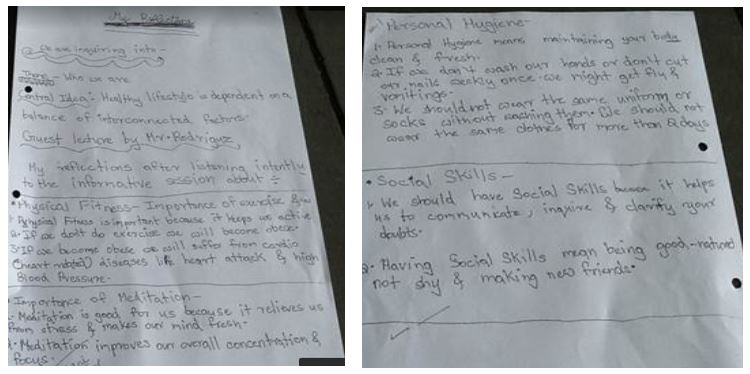 My Reflections
We are inquiring into-
Theme- Who we are
Central Idea:- Healthy lifestyle is dependent on a
balance of interconnected factors.
Guest lecture by Mr. Rodriguz,
My reflections after listening intently
to the informative session about ÷
• Physical Fitness- Importance of exercise &
1. Physical Fitness is important because it keeps us active
2. If we don't do exercise we will become obese.
3. If we become obese we will suffer from cardio
(heart related) diseases like heart attack & high
Blood Pressure.
• Importance of Meditation-
1. Meditation is good for us because it relieves us
from stress & makes our mind fresh.
2. Meditation improves our overall concentration &
focus.
Personal Hygiene-
1. Personal Hygiene means maintaining your body
clean & fresh.
2. If we don't wash our hands or don't cut
our nails weekly once. we might get flu &
vomitings.
3. We should not wear the same uniform or
socks without washing them. We should not
wear the same clothes for more than 2 days
• Social Skills-
1. We should have Social Skills because it helps
us to communicate, inquire & clarify your
doubts.
2. Having Social Skills mean being good-natured
not shy & making new friends.